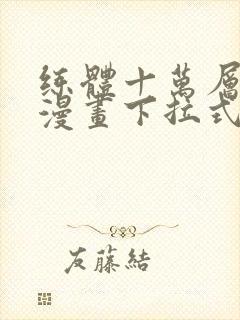 練體十萬層
漫畫下拉式
友藤結